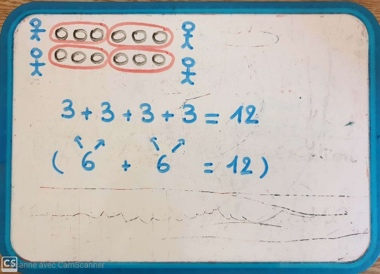 3 + 3 + 3 + 3 = 12
( 6 + 6 = 12 )
CS Scanné avec CamScanner